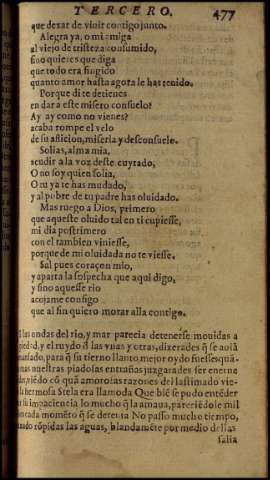 TERCERO. 477
que dexar de viuir contigo junto.
Alegra ya, o mi amiga
al viejo de tristeza consumido,
sino quieres que diga
que todo era fingido
quanto amor hasta agora le has tenido.
Porque di te detienes
en dar a este misero consuelo?
Ay ay como no vienes?
acaba rompe el velo
de su aflicion, miseria y desconsuelo.
Solias, alma mia,
acudir a la voz deste cuytado,
O no soy quien solia,
O tu ya te has mudado,
y al pobre de tu padre has oluidado.
Mas ruego a Dios, primero
que aqueste oluido tal en ti cupiesse,
mi dia postrimero
con el tambien viniesse,
porque de mi oluidada no te viesse.
Sal pues coraçon mio,
y aparta la sospecha que aqui digo,
y sino aquesse rio
acojame consigo
que al fin quiero morar alla contigo.
las ondas del rio, y mar parecia detenerse mouidas a
piedad, y el ruydo d las vnas y otras, dizerades q̃ se auia
mansado, para q̃ su tierno llanto mejor oydo fuesse
nuestras piadosas entrañas juzgarades ser enerne
do cõ quã amorosas razones del lastimado vie
la hermosa Stela era llamada Que biẽ se pudo entẽder
su impaciencia lo mucho q̃ la amaua, pareciẽdole mil
cada momẽto q̃ se detenia No passo mucho tiempo,
rõpidas las aguas, blandamẽte por medio dellas
salia